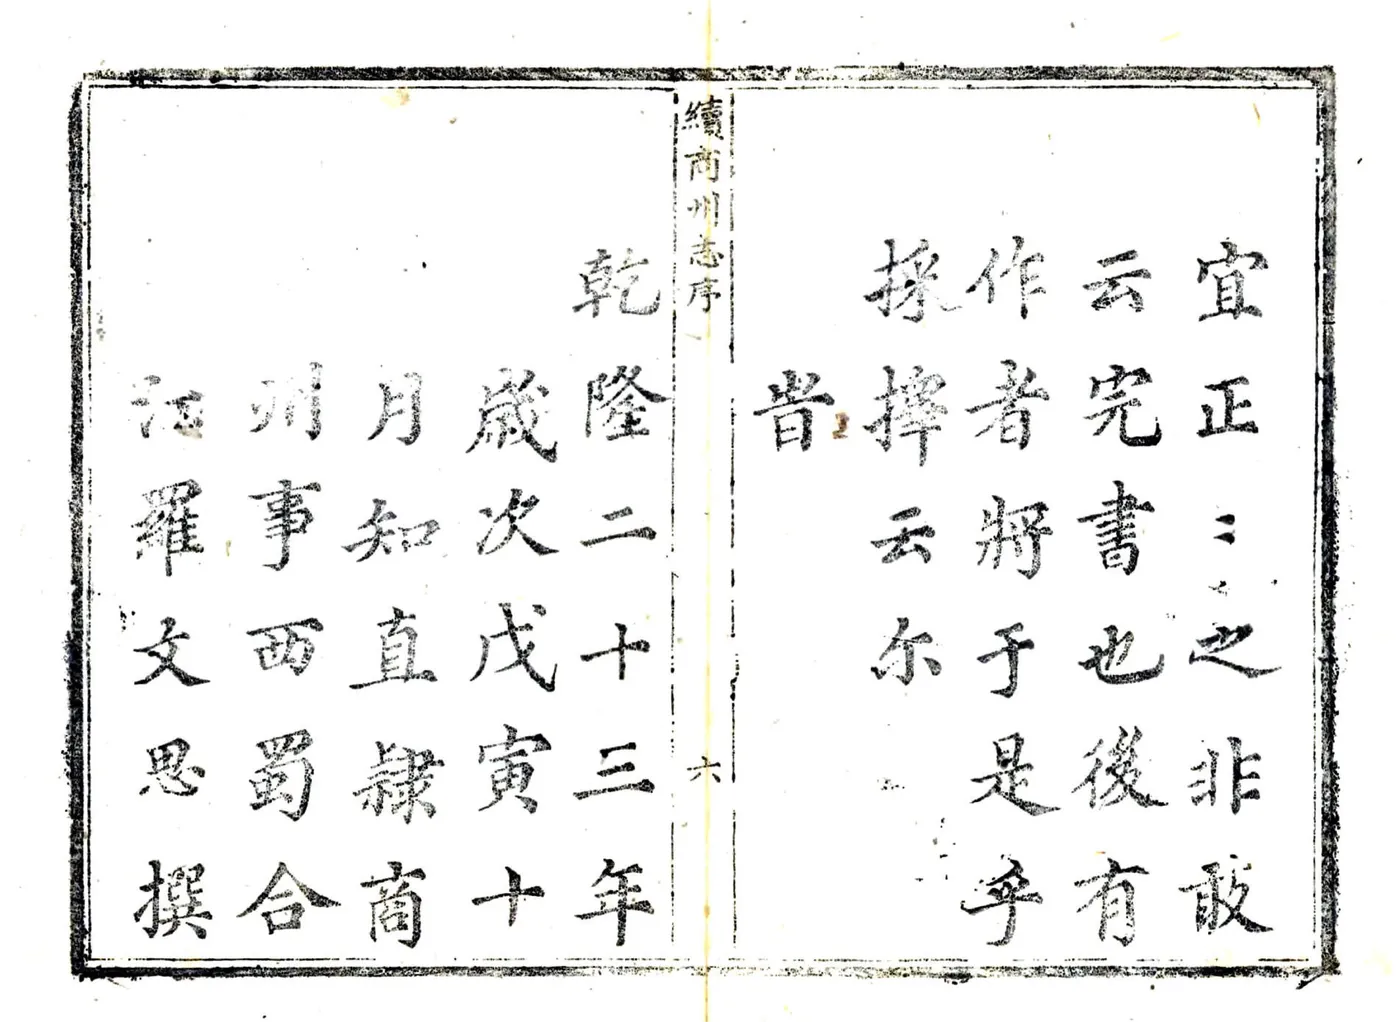 宜正〻之非敢
云完書也後有
作者將于是乎
採擇云尔
旹
續商州志序
六
乾隆二十三年
歲次戊寅十
月知直隸商
州事西蜀合
江羅文思撰